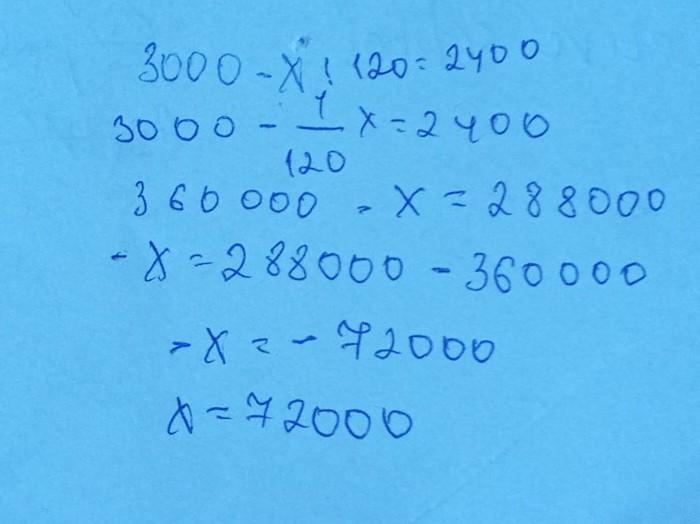 3000 - x : 120 = 2400
3000 - 1/120 x = 2400
360 000 - x = 288000
- x = 288000 - 360000
- x = - 72000
x = 72000